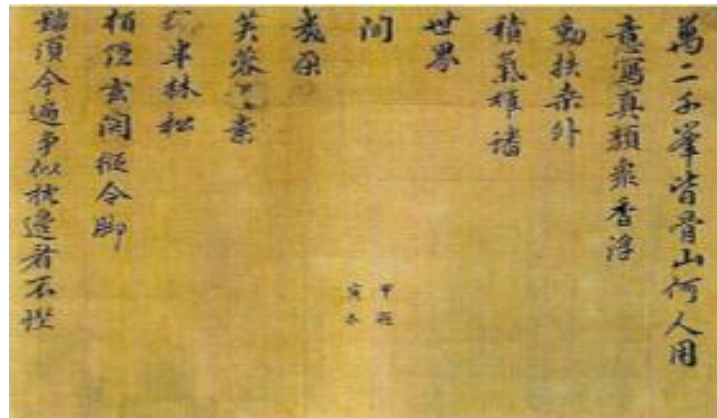 萬二千峯皆骨山何人用
意寫真顔衆香浮
動扶桒外
積氣雄蟠
世界
間
幾朶
芙蓉素
彩半林松
栢隱玄関縱令脚
踏須今遍爭似枕邊看不慳
甲寅
冬題